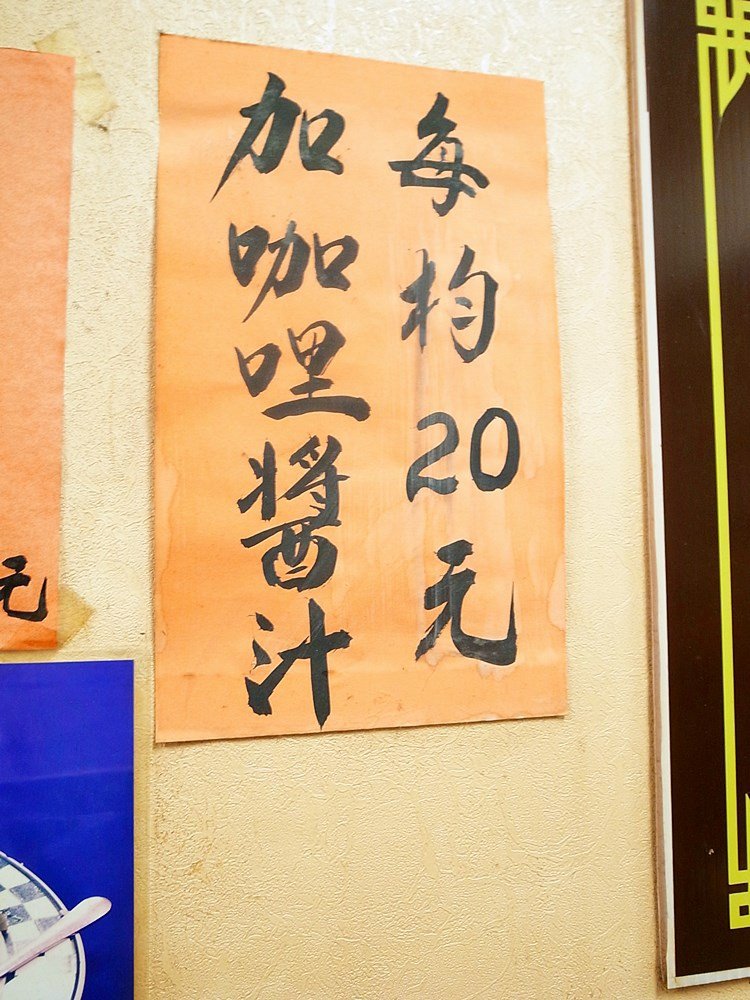 每杓20元
加咖哩醬汁
元